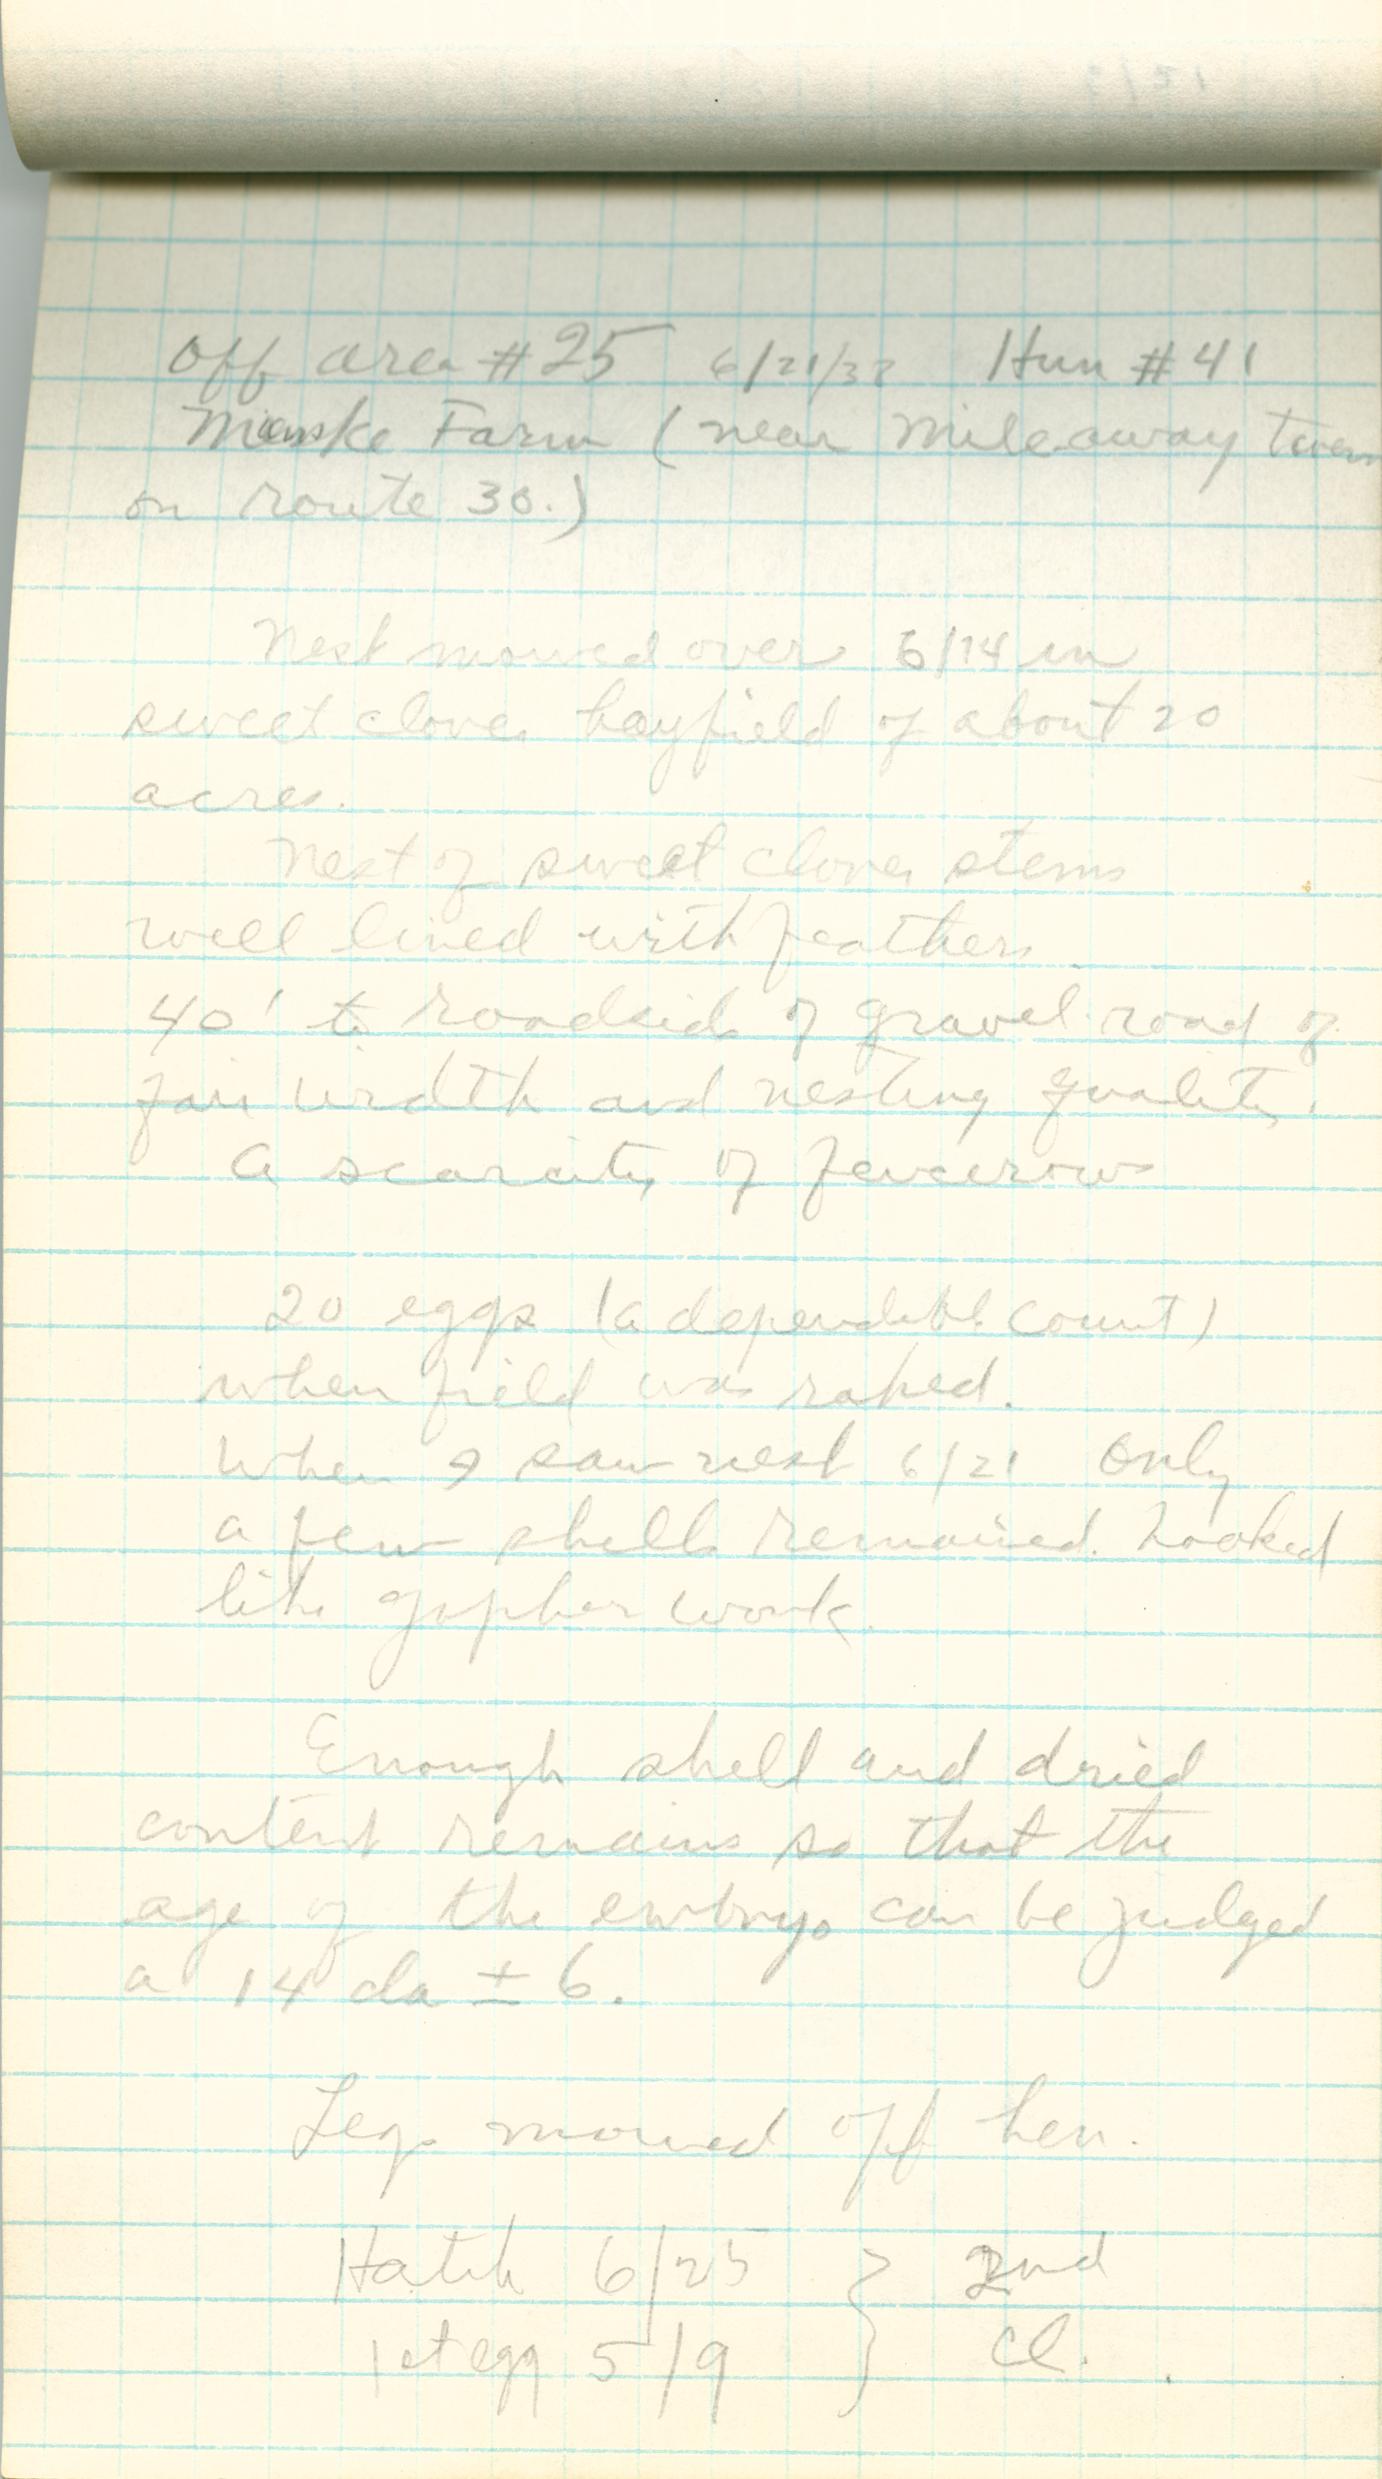 Off area #25 6/21/38 Hun #41
Manske Farm (near Mileaway Tavern
on route 30.)
Nest mowed over 6/14 in
sweet clover hayfield of about 20
acres.
Nest of sweet clover stems
well lined with feathers
40' to roadside of gravel road of
fair width and nesting quality.
A scarcity of fencerows
20 eggs (a dependable count)
when field was raked.
When I saw nest 6/21 only
a few shells remained. Looked
like gopher work.
Enough shell and dried
content remains so that the
age of the embryo can be judged
a 14 da ± 6.
Legs mowed off hen.
Hatch 6/25 } 2nd
1st egg 5/9 } cl.